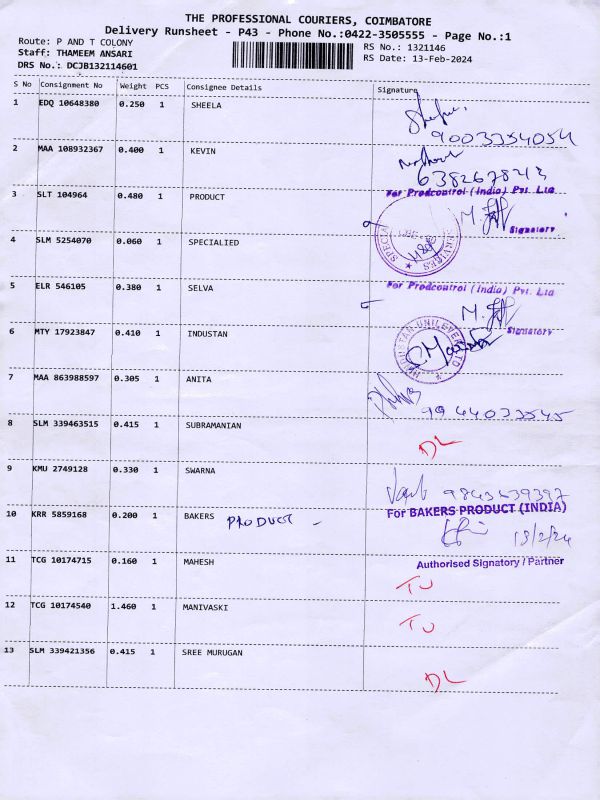 THE PROFESSIONAL COURIERS, COIMBATORE
Delivery Runsheet - P43 - Phone No.:0422-3505555 - Page No.:1
Route: P AND T COLONY
Staff: THAMEEM ANSARI
DRS No.: DCJB132114601
RS No.: 1321146
RS Date: 13-Feb-2024
S No Consignment No Weight PCS Consignee Details Signature
1 EDQ 10648380 0.250 1 SHEELA
9003354054
2 MAA 108932367 0.400 1 KEVIN
6382678213
For Prodcontrol (India) Pvt. Ltd
3 SLT 104964 0.480 1 PRODUCT
Signatory
4 SLM 5254070 0.060 1 SPECIALIED
SERVICES
5 ELR 546105 0.380 1 SELVA
For Prodcontrol (India) Pvt. Ltd
Signatory
6 MTY 17923847 0.410 1 INDUSTAN
HINDUSTAN UNILEVER LTD
7 MAA 863988597 0.305 1 ANITA
9944033545
8 SLM 339463515 0.415 1 SUBRAMANIAN
DL
9 KMU 2749128 0.330 1 SWARNA
9843639397
For BAKERS PRODUCT (INDIA)
10 KRR 5859168 0.200 1 BAKERS PRODUCT -
13/2/24
Authorised Signatory / Partner
11 TCG 10174715 0.160 1 MAHESH
TU
12 TCG 10174540 1.460 1 MANIVASKI
TU
13 SLM 339421356 0.415 1 SREE MURUGAN
DL